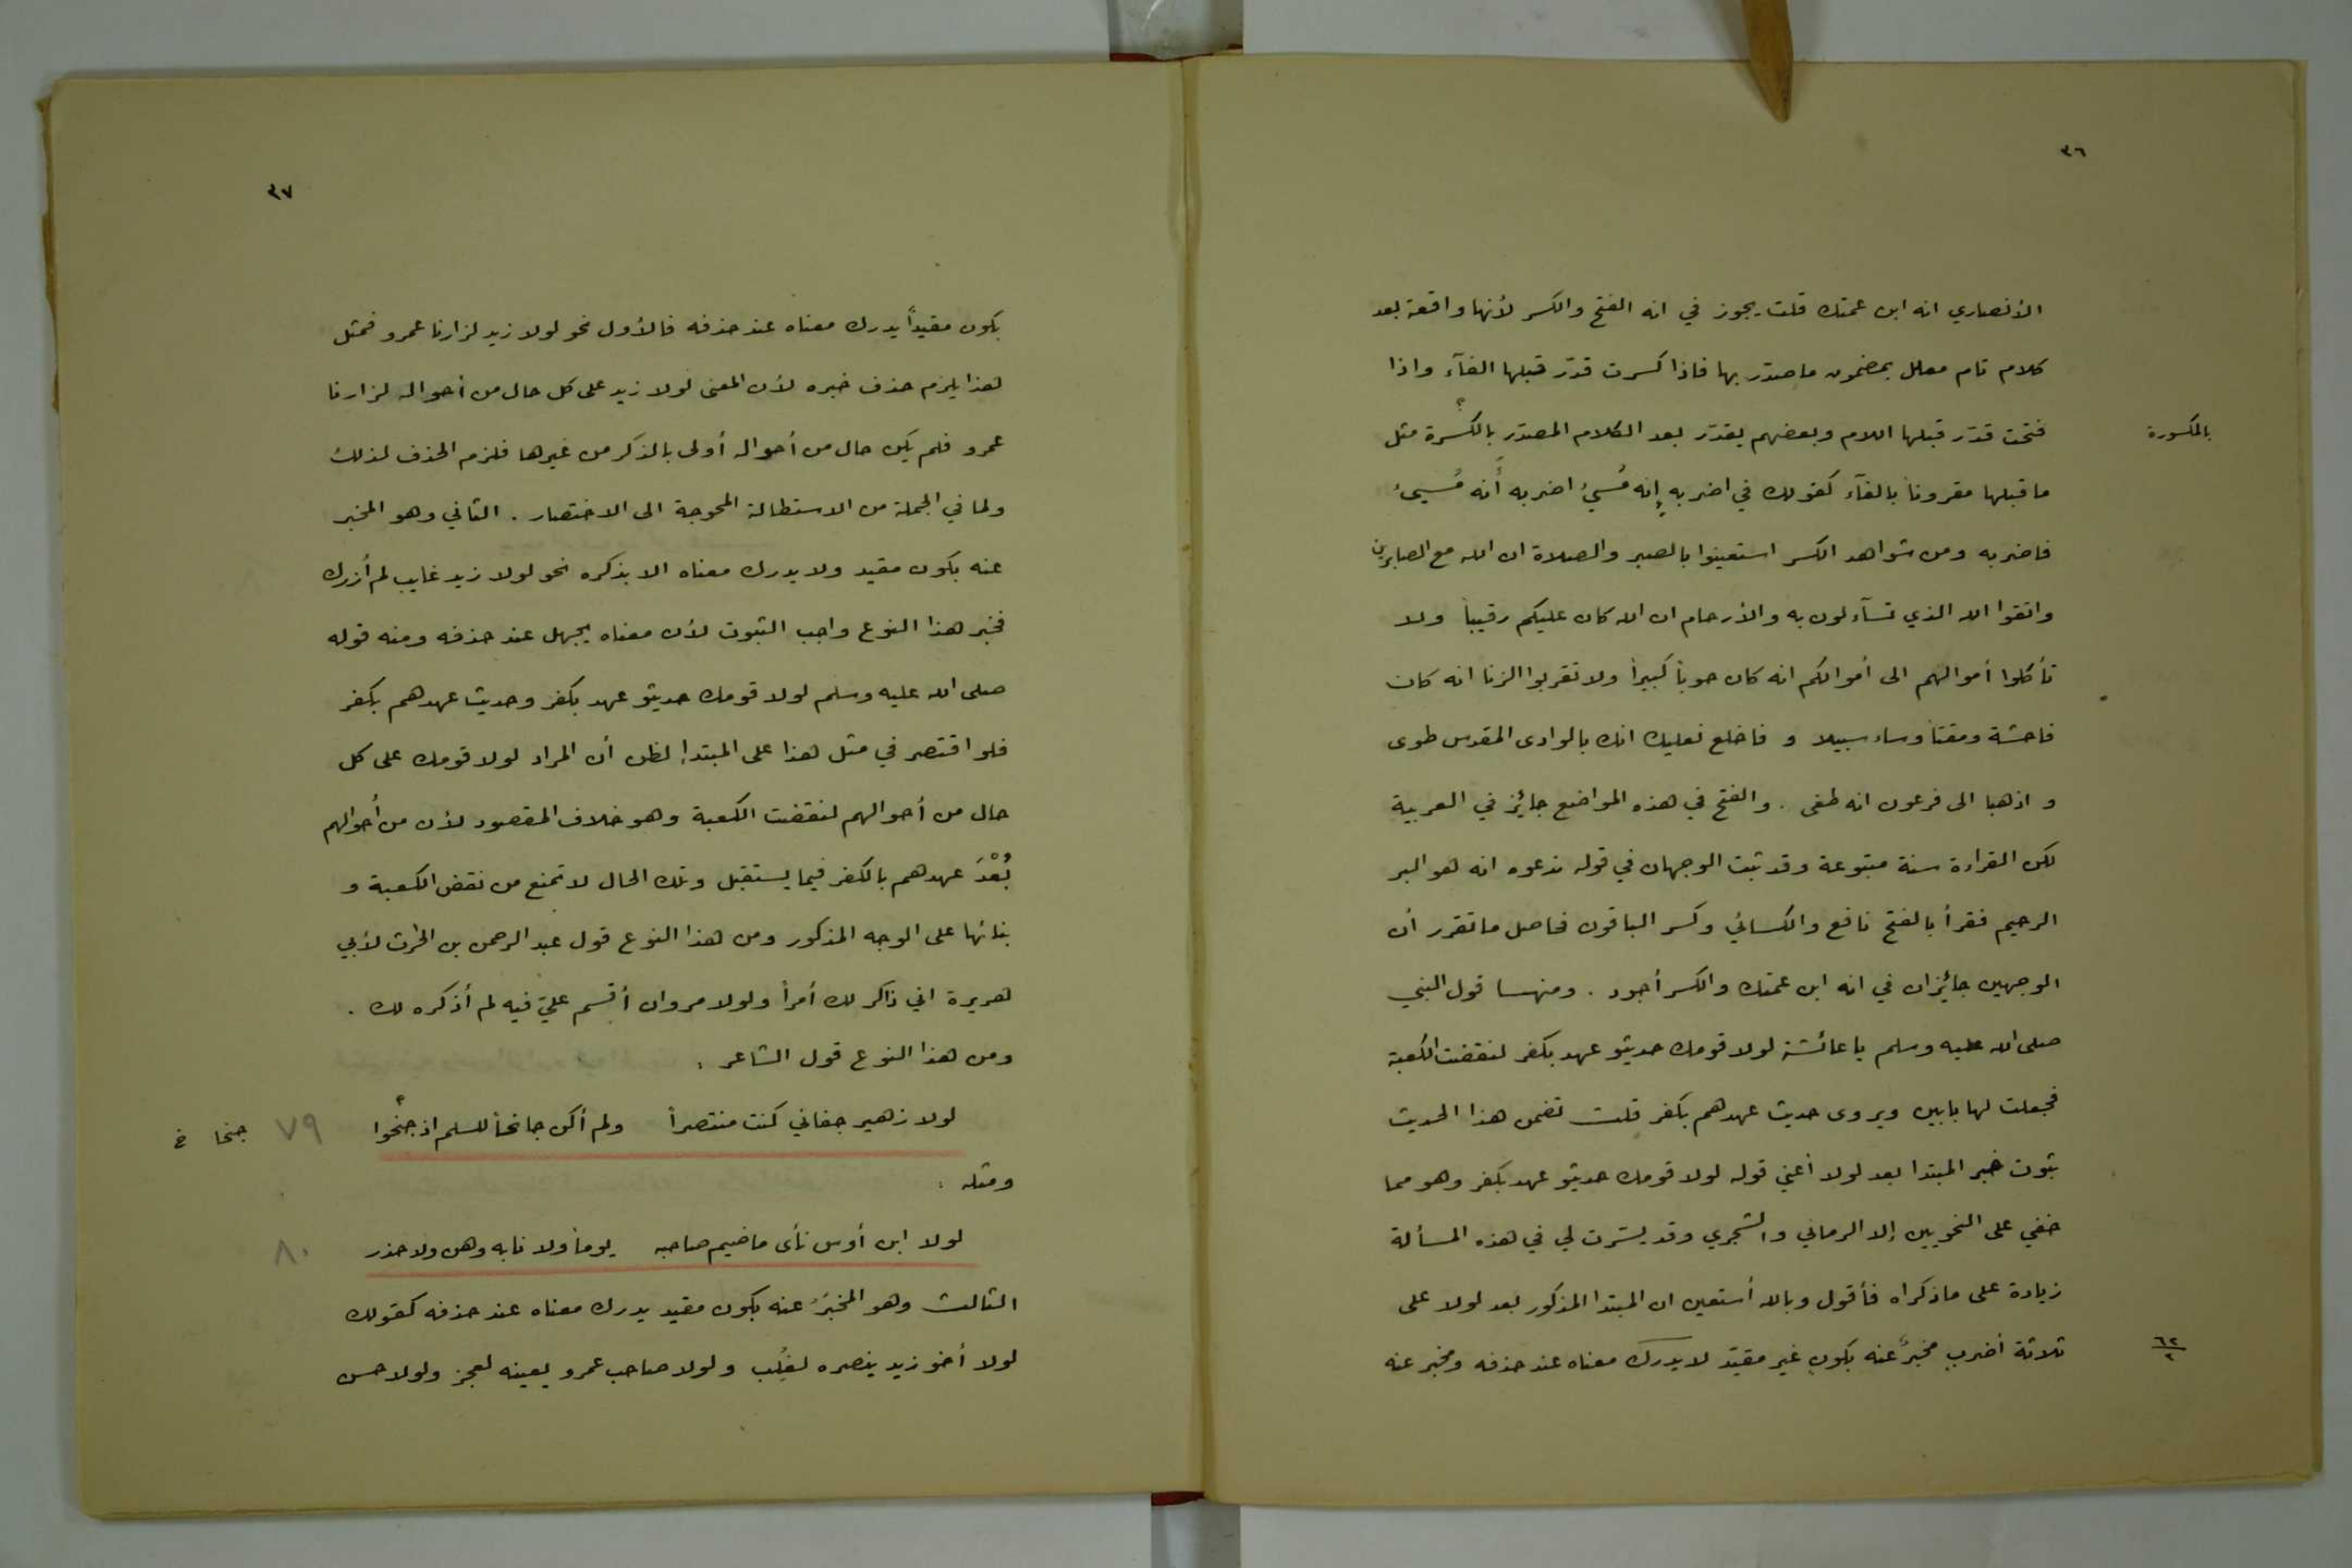 ٣٦
الأنصاري انه ابن عمتك قلت يجوز في انه الفتح والكسر لأنها واقعة بعد
كلام تام معلل بمضمون ما صدّر بها فاذا كسرت قدّر قبلها الفآء واذا
فتحت قدّر قبلها اللام وبعضهم يقدّر بعد الكلام المصدّر بالكسرة مثل
بالمكسورة
ما قبلها مقروناً بالفآء كقولك في اضربه إنه مُسيئ اضربه أنه مُسيئ
فاضربه ومن شواهد الكسر استعينوا بالصبر والصلاة ان الله مع الصابرين
واتقوا الله الذي تسآءلون به والأرحام ان الله كان عليكم رقيباً ولا
تأكلوا أموالهم الى أموالكم انه كان حوباً كبيراً ولا تقربوا الزنا انه كان
فاحشة ومقتاً وساء سبيلا و فاخلع نعليك انك بالوادى المقدس طوى
و اذهبا الى فرعون انه طغى . والفتح في هذه المواضع جائز في العربية
لكن القراءة سنة متبوعة وقد ثبت الوجهان في قوله ندعوه انه هو البر
الرحيم فقرأ بالفتح نافع والكسائي وكسر الباقون فحاصل ما تقرر أن
الوجهين جائزان في انه ابن عمتك والكسر أجود . ومنهــا قول النبي
صلى الله عليه وسلم يا عائشة لولا قومك حديثو عهد بكفر لنقضت الكعبة
فجعلت لها بابين ويروى حديث عهدهم بكفر قلت تضمن هذا الحديث
ثبوت خبر المبتدا بعد لولا أعني قوله لولا قومك حديثو عهد بكفر وهو مما
خفي على النحويين إلا الرماني والشجري وقد يسّرت لي في هذه المسألة
زيادة على ما ذكراه فأقول وبالله أستعين ان المبتدا المذكور بعد لولا على
ثلاثة أضربٍ مخبرٌ عنه بكونٍ غير مقيّد لا يدرك معناه عند حذفه ومخبر عنه
٦٢
٢
٣٧
بكون مقيداً يدرك معناه عند حذفه فالأول نحو لولا زيد لزارنا عمرو فمثل
هذا يلزم حذف خبره لأن المعنى لولا زيد على كل حال من أحواله لزارنا
عمرو فلم يكن حال من أحواله أولى بالذكر من غيرها فلزم الحذف لذلك
ولما في الجملة من الاستطالة المحوجة الى الاختصار . الثاني وهو المخبر
عنه بكون مقيد ولا يدرك معناه الا بذكره نحو لولا زيد غايب لم أزرك
فخبر هذا النوع واجب الثبوت لأن معناه يجهل عند حذفه ومنه قوله
صلى الله عليه وسلم لولا قومك حديثو عهد بكفر وحديث عهدهم بكفر
فلو اقتصر في مثل هذا على المبتدإ لظن أن المراد لولا قومك على كل
حال من أحوالهم لنقضت الكعبة وهو خلاف المقصود لأن من أحوالهم
بُعْدَ عهدهم بالكفر فيما يستقبل وتلك الحال لا تمنع من نقض الكعبة و
بنائها على الوجه المذكور ومن هذا النوع قول عبد الرحمن بن الحٰرث لأبي
هريرة اني ذاكر لك أمراً ولولا مروان أقسم عليّ فيه لم أذكره لك .
ومن هذا النوع قول الشاعر :
لولا زهير جفاني كنت منتصراً ولم أكن جانحاً للسلم اذ جنحوا ٧٩ جنحا خ
ومثله :
لولا ابن أوس نأى ماضيم صاحبه يوماً ولا نابه وهن ولا حذر ٨٠
الثالث وهو المخبَرُ عنه بكون مقيد يدرك معناه عند حذفه كقولك
لولا أخو زيد ينصره لغُلِب ولولا صاحب عمرو يعينه لعجز ولولا حسن